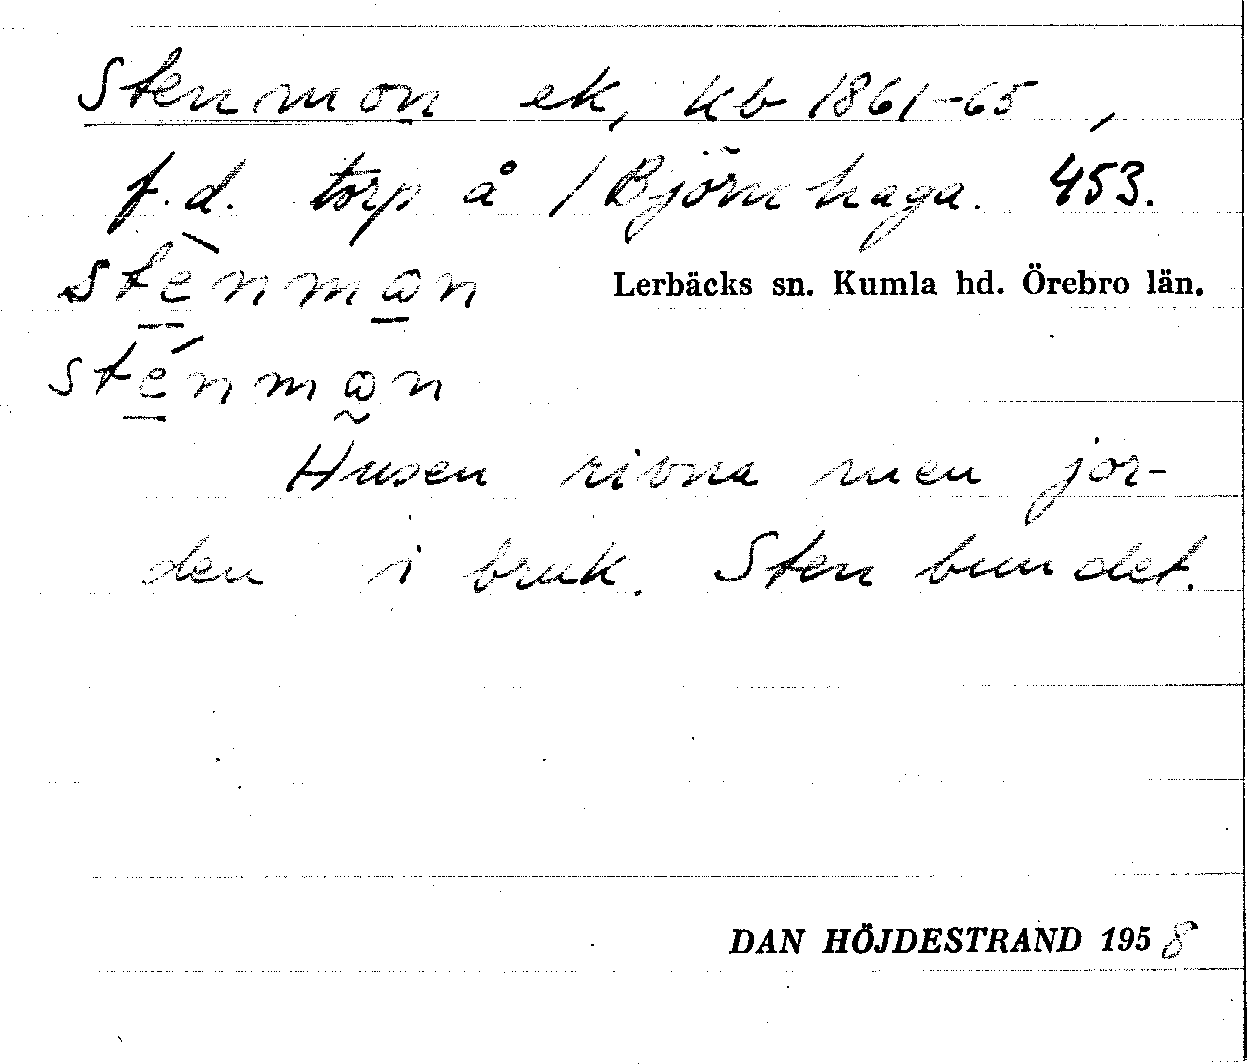 Stenmon ek, kb 1861-65,
f.d. torp å /Björnhaga. 453.
stènmαn Lerbäcks sn. Kumla hd. Örebro län.
sténmαn
Husen rivna men jor-
den i bruk. Sten bundet.
DAN HÖJDESTRAND 1958